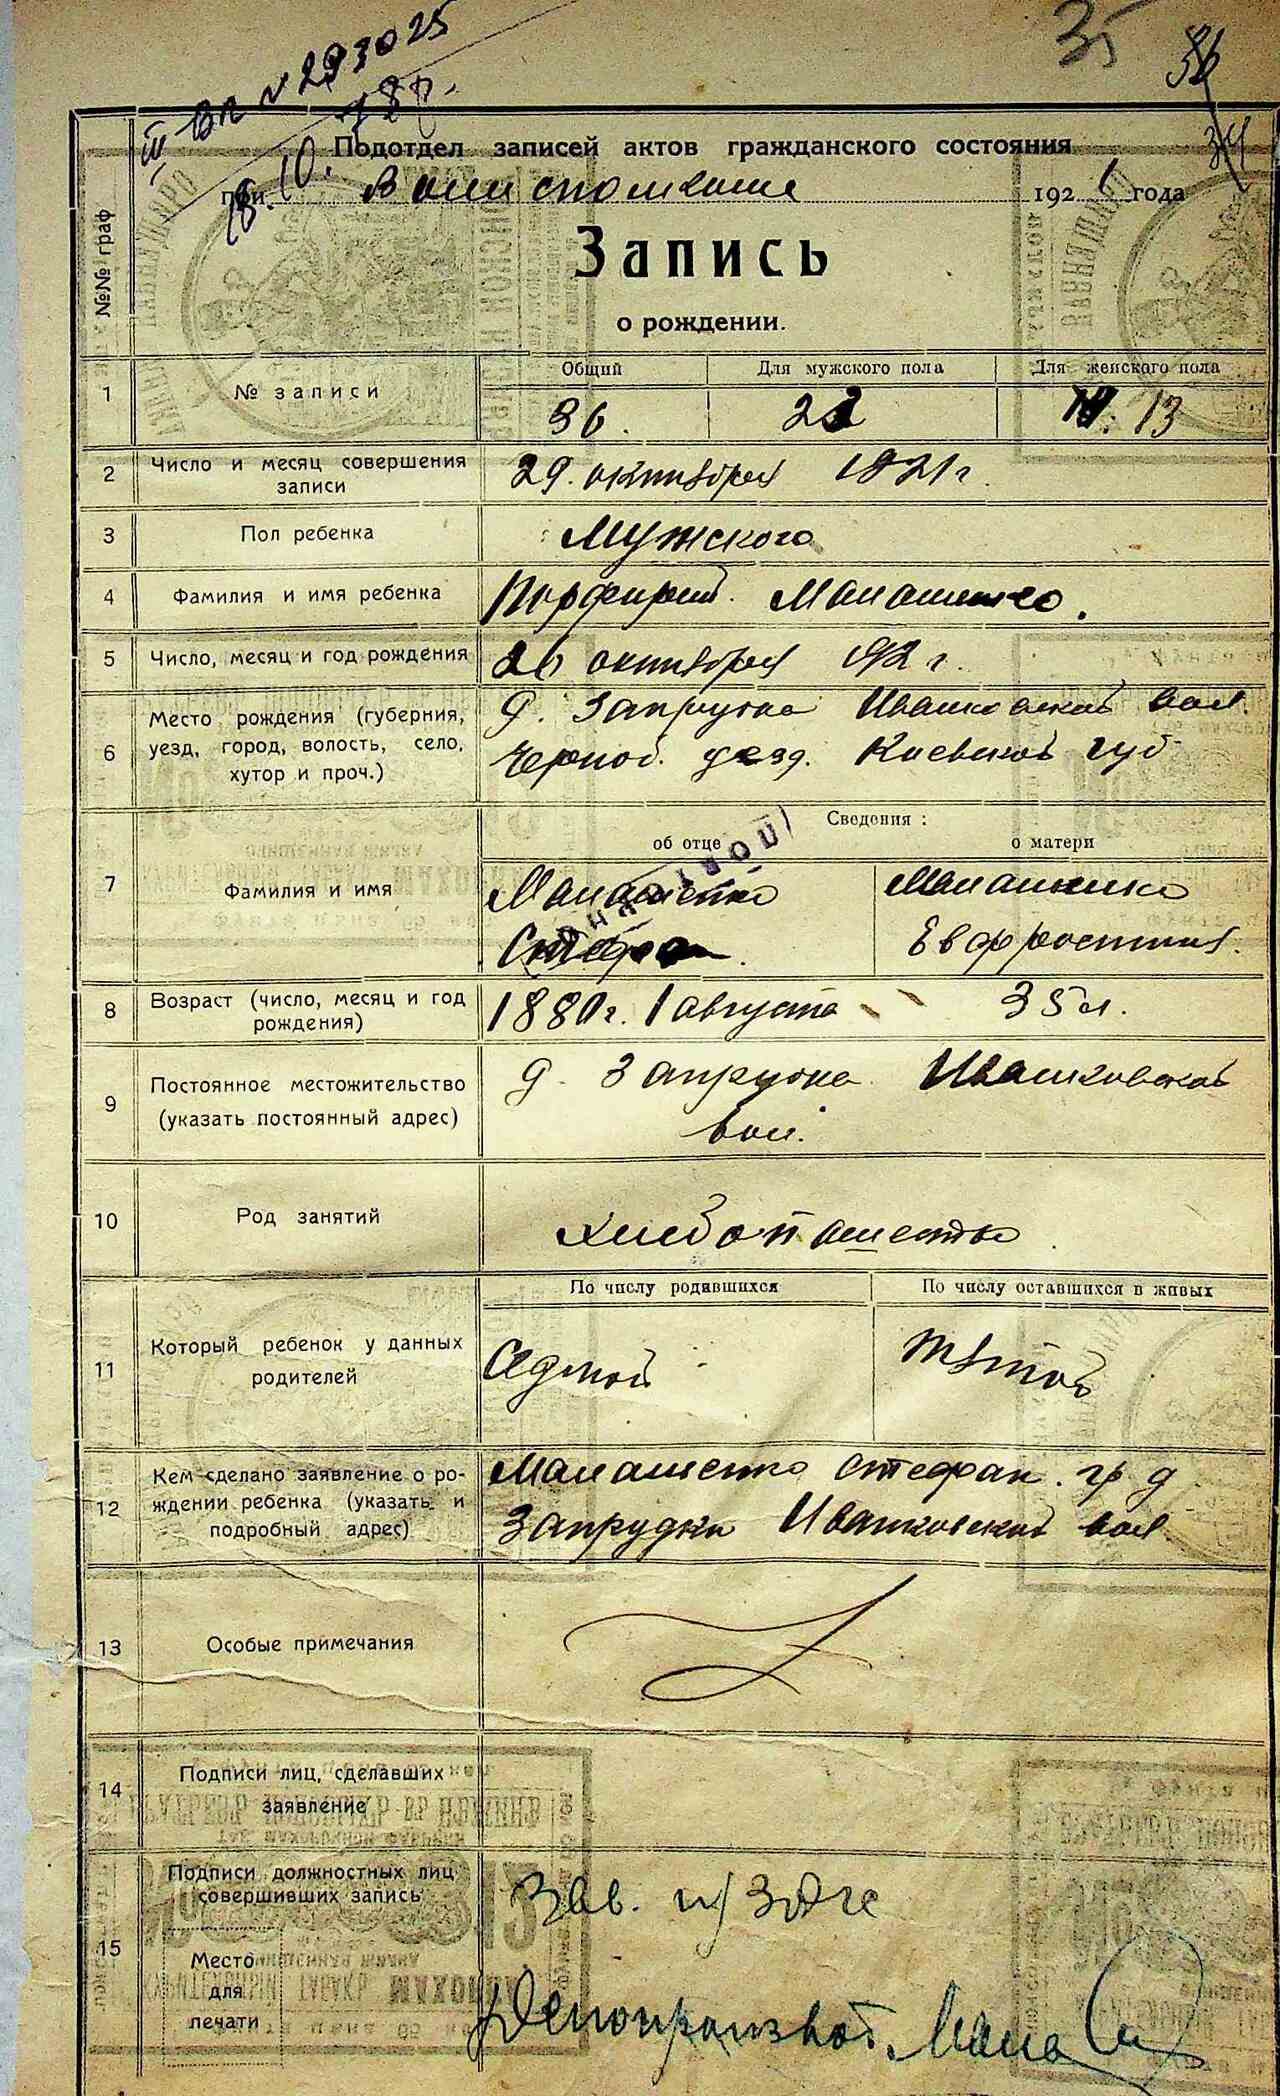 III ВЛ № 293025
18. 10. 78 г.
35
36
34
Подотдел записей актов гражданского состояния
при Волисполкоме 1921 года
Запись
о рождении.
№№ граф
Общий Для мужского пола Для женского пола
1 № записи 36. 23 13
2 Число и месяц совершения записи 29. октября 1921 г.
3 Пол ребенка Мужского
4 Фамилия и имя ребенка Порфирий. Малашенко.
5 Число, месяц и год рождения 26 октября 192 г.
6 Место рождения (губерния,
уезд, город, волость, село,
хутор и проч.)
д. Запрудка Иванковской вол.
Черноб. уезд. Киевской губ
Сведения:
об отце о матери
7 Фамилия и имя
Малашенко Малашенко
Стефан. Евфросиния.
8 Возраст (число, месяц и год
рождения)
1880 г. 1 августа 35 л.
9 Постоянное местожительство
(указать постоянный адрес)
д. Запрудка Иванковской
вол.
10 Род занятий хлебопашество
По числу родившихся По числу оставшихся в живых
11 Который ребенок у данных
родителей
Седмой пятой
12 Кем сделано заявление о ро-
ждении ребенка (указать и
подробный адрес)
Малашенко Стефан. гр д
Запрудки Иванковской вол
13 Особые примечания
14 Подписи лиц, сделавших
заявление
15 Подписи должностных лиц
совершивших запись
Место
для
печати
Зав. п/
Делопроизвод.